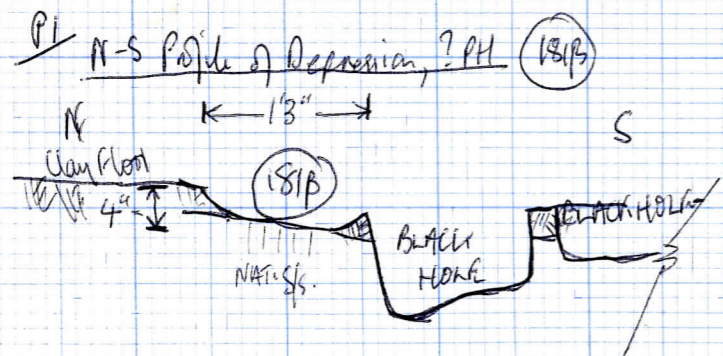 P1
N-S Profile of Depression, ?PH 181β
1'3"
N S
Clay Floor
181β
4"
BLACK HOLE
BLACK HOLE
NAT. S/S.